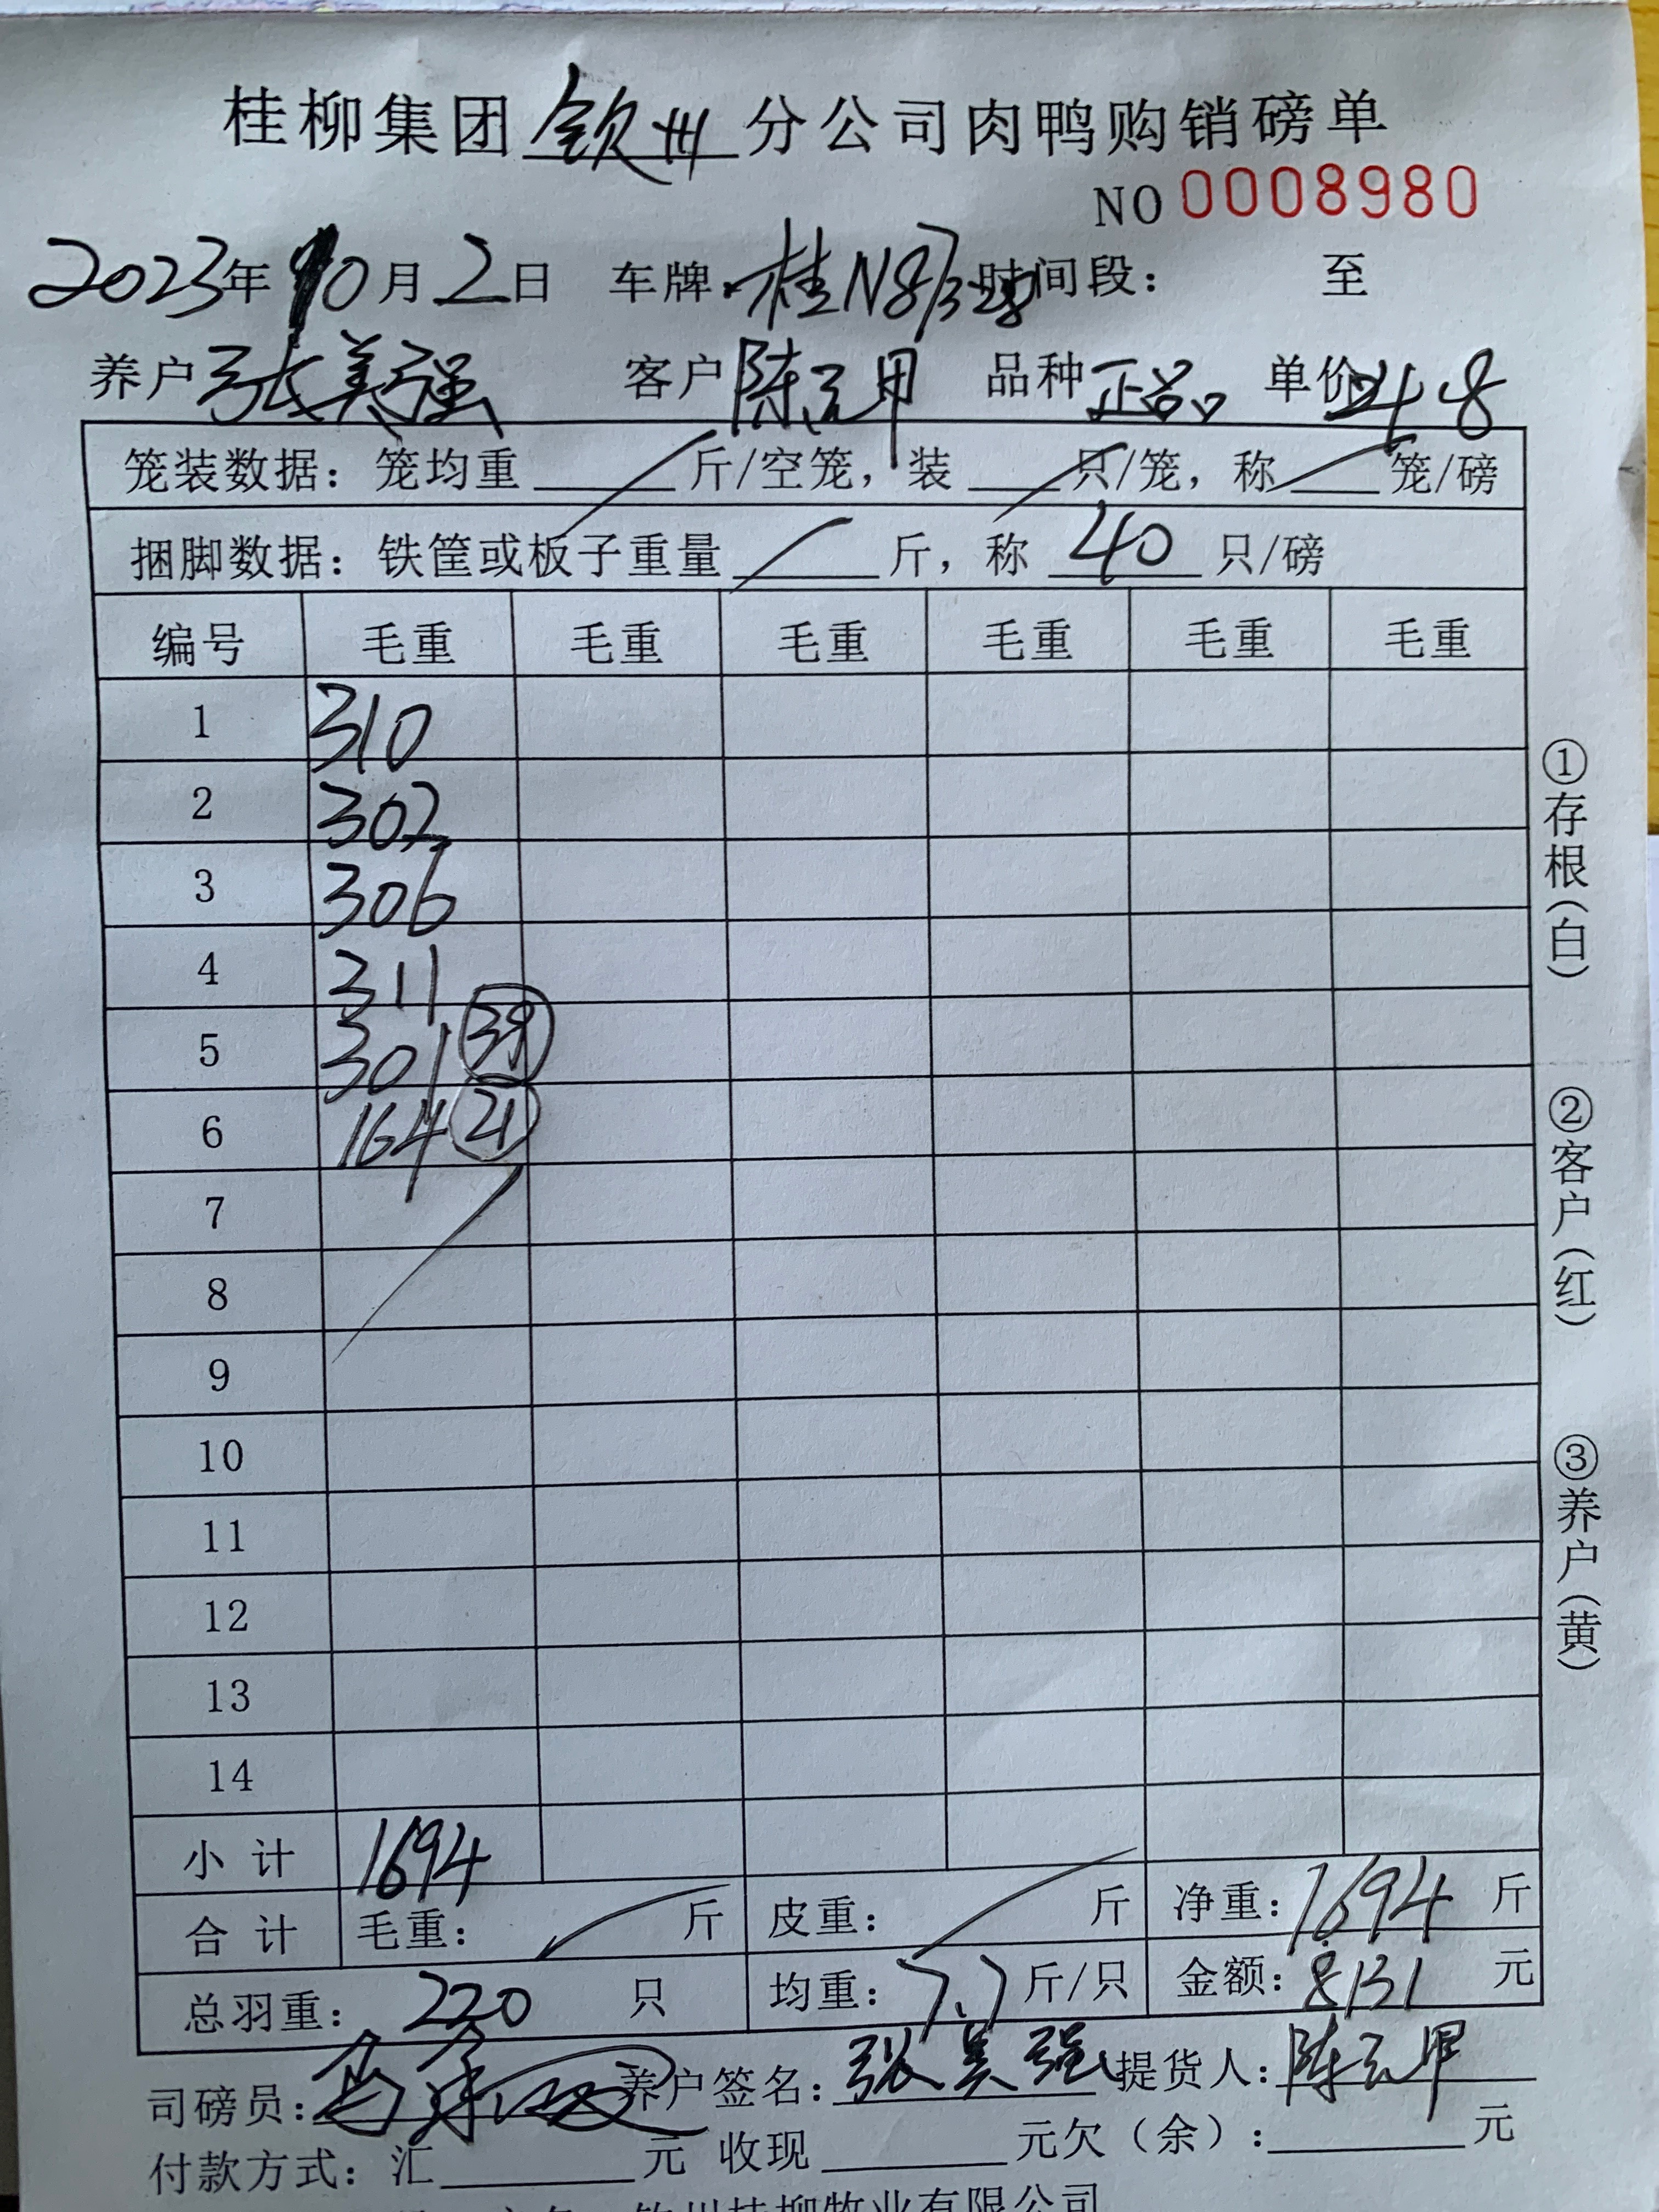 桂柳集团钦州分公司肉鸭购销磅单
NO 0008980
2023年10月2日 车牌:桂N8 时间段: 至
养户张美强 客户陈元甲 品种正品 单价4.8
笼装数据:笼均重 斤/空笼,装 只/笼,称 笼/磅
捆脚数据:铁筐或板子重量 斤,称 40 只/磅
编号 毛重 毛重 毛重 毛重 毛重 毛重
1 310
2 302
3 306
4 311
5 301 39
6 164 21
7
8
9
10
11
12
13
14
小计 1694
合计 毛重: 斤 皮重: 斤 净重:1694 斤
总羽重:220 只 均重:7.7 斤/只 金额:8131 元
司磅员: 养户签名:张美强 提货人:陈元甲
付款方式:汇 元 收现 元欠(余): 元
钦州桂柳牧业有限公司
①存根(白)
②客户(红)
③养户(黄)